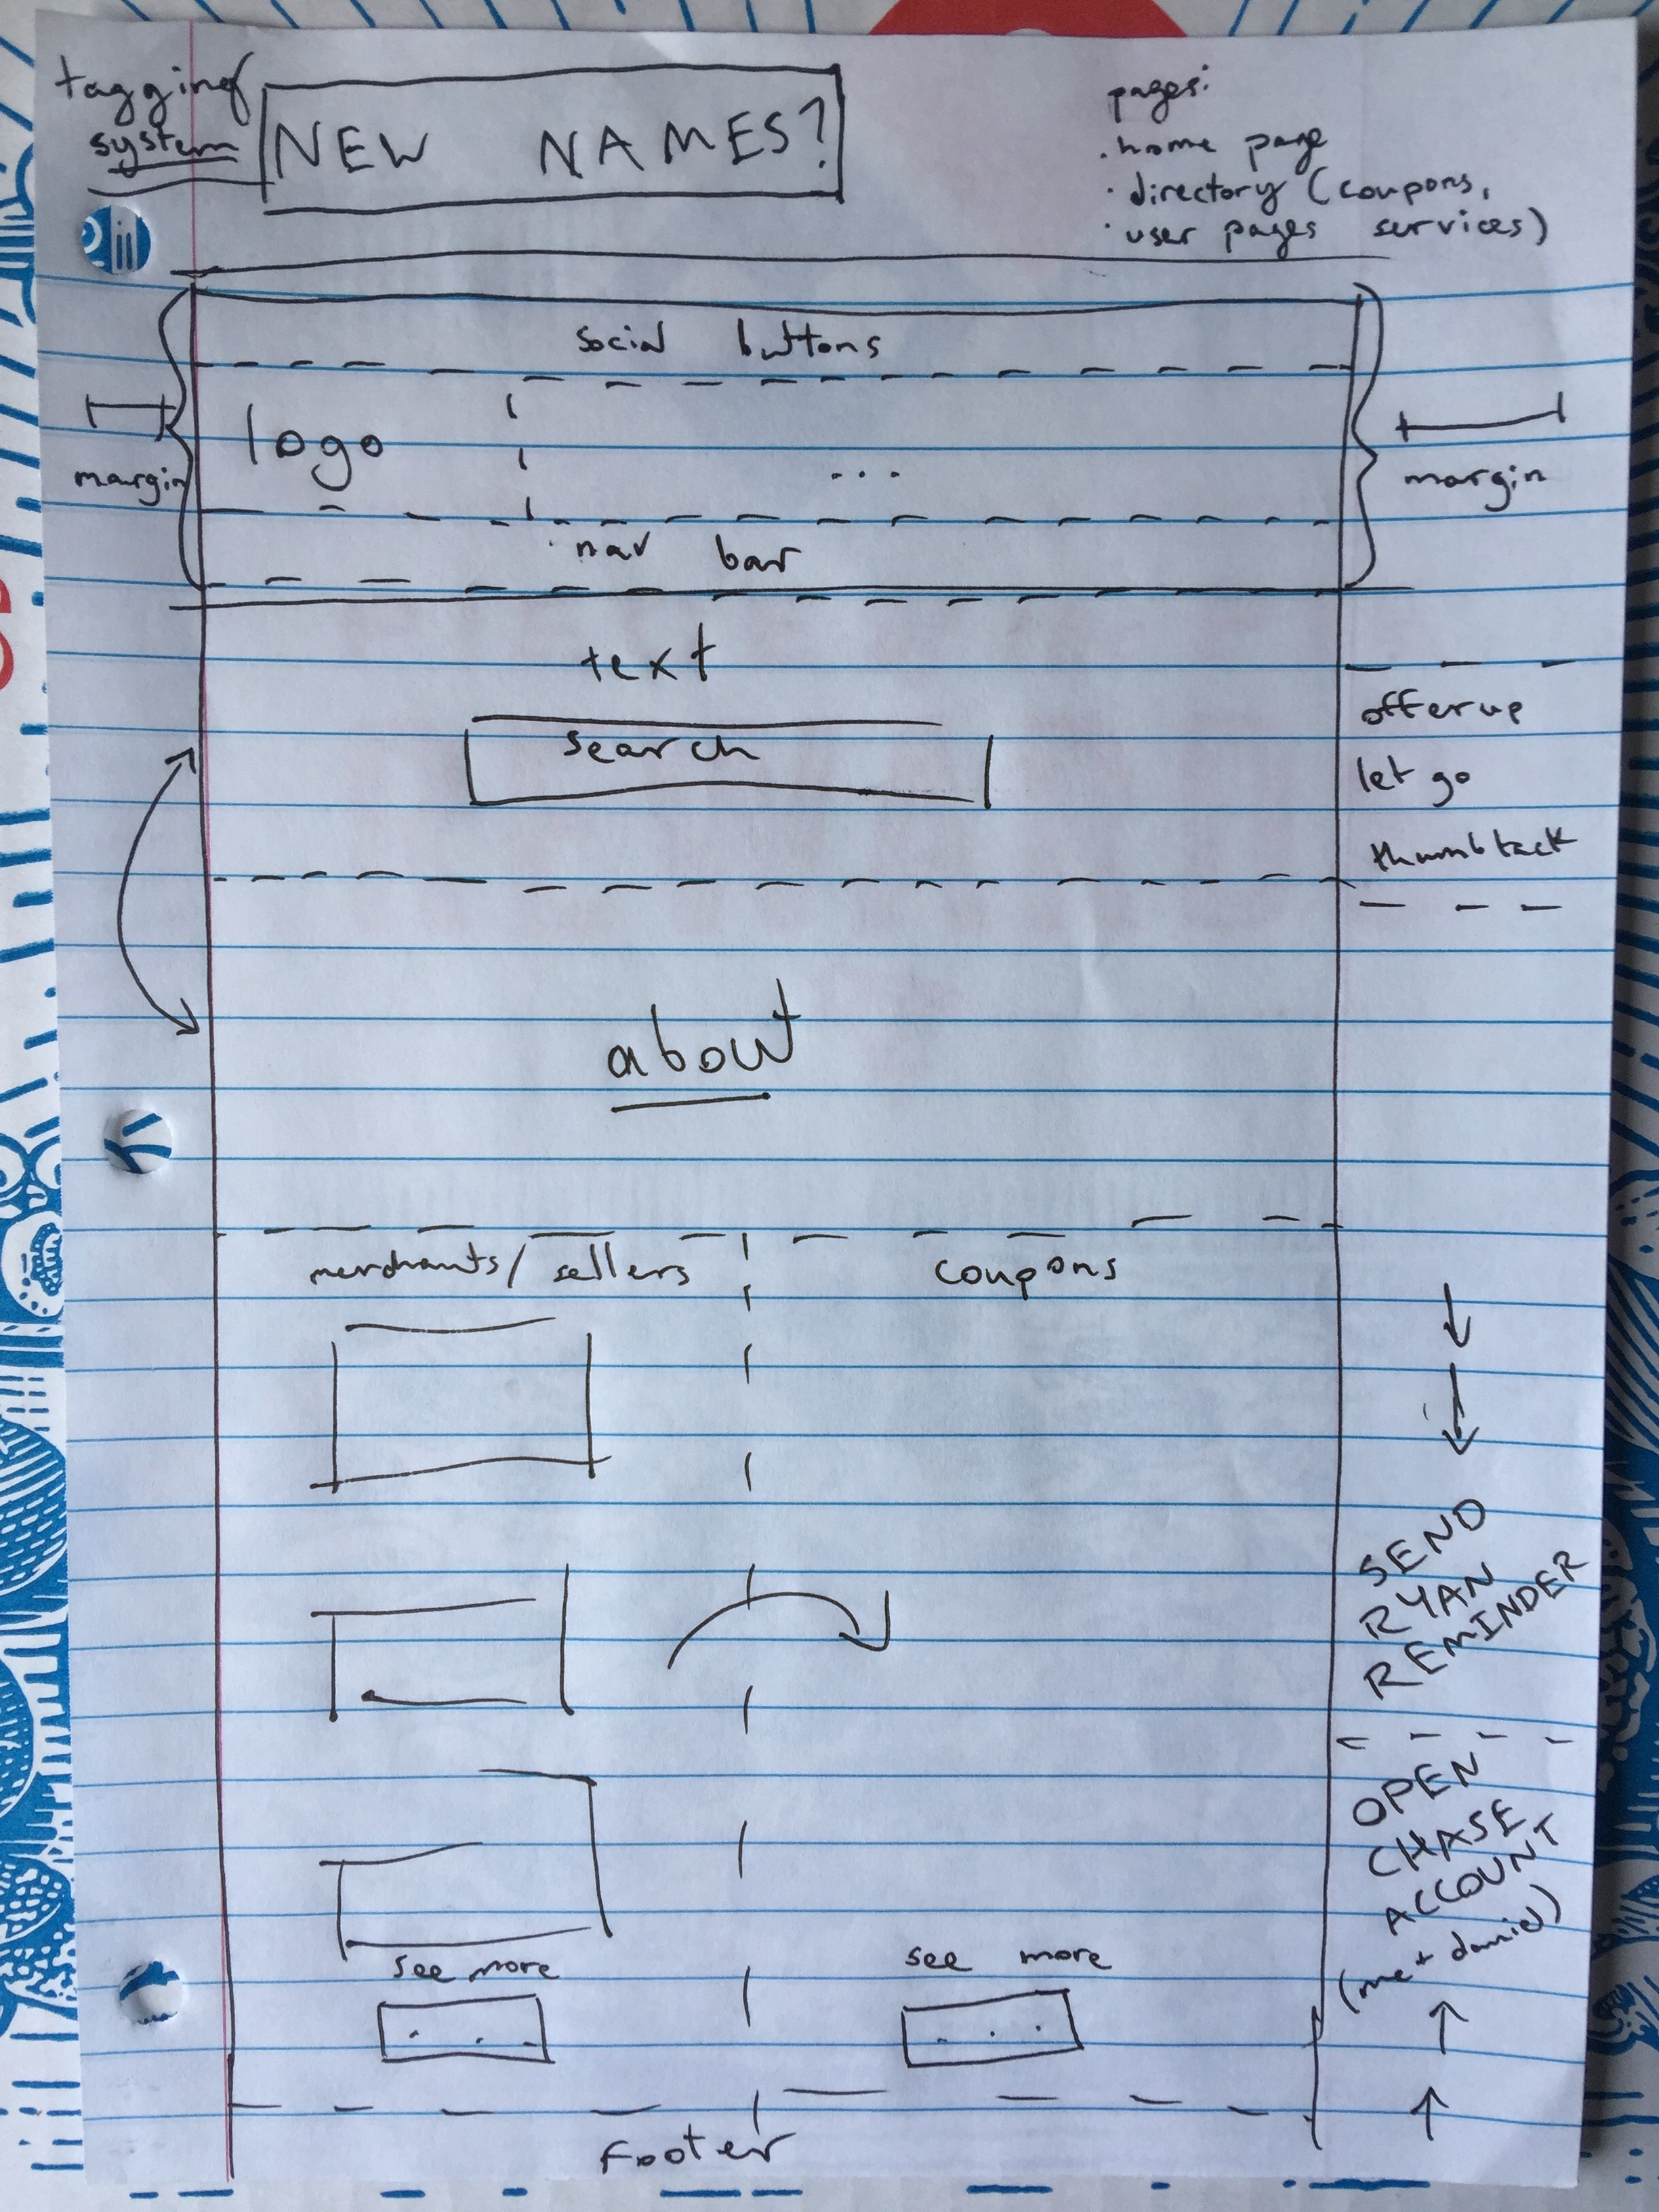 tagging
system
NEW NAMES?
pages:
· home page
· directory (coupons,
· user pages services)
social buttons
logo
...
margin
margin
nav bar
text
search
offerup
let go
thumbtack
about
merchants/sellers
coupons
SEND
RYAN
REMINDER
OPEN
CHASE
ACCOUNT
(me + daniel)
see more
see more
. . .
. . .
Footer